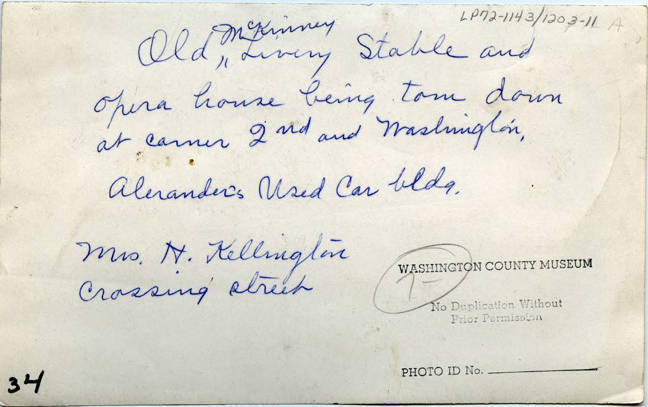 LP72-1143/1203-11 A
McKinney
Old, Livery Stable and
opera house being torn down
at corner 2nd and Washington,
Alexander's Used Car bldg.
Mrs. H. Kellington
crossing street
WASHINGTON COUNTY MUSEUM
7-
No Duplication Without
Prior Permission
PHOTO ID No.
34